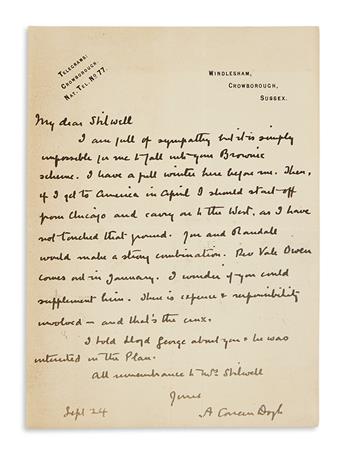 TELEGRAMS:
CROWBOROUGH.
NAT. TEL. NO. 77.
WINDLESHAM,
CROWBOROUGH,
SUSSEX.
My dear Stilwell
I am full of sympathy but it is simply
impossible for me to fall into your Brownie
scheme. I have a full winter here before me. Then,
if I get to America in April I should start off
from Chicago and carry on to the West, as I have
not touched that ground. You and Randall
would make a strong combination. Rev Vale Owen
comes out in January. I wonder if you could
supplement him. There is expense & responsibility
involved — and that's the crux.
I told Lloyd George about you & he was
interested in the Plan.
All remembrance to Mrs Stilwell
Yours
Sept 24 A Conan Doyle